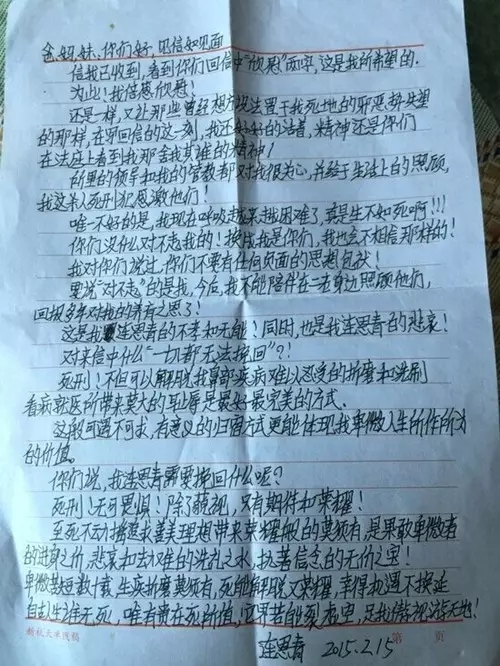 爸、妈、妹、你们好，见信如见面
信我已收到，看到你们回信中"欣慰"两字，这是我所希望的.
为此！我倍感欣慰！
还是一样，又让那些曾经想方设法置于我死地的邪恶势失望
的那样，在写回信的这一刻，我还好好的活着，精神还是你们
在法庭上看到我那舍我其谁的精神！
所里的领导和我的管教都对我很关心，并给于生活上的照顾，
我这杀人死刑犯感激他们！
唯一不好的是，我现在呼吸越来越困难了，真是生不如死啊!!!
你们没什么对不起我的！换成我是你们，我也会不相信那样的！
我对你们说过，你们不要有任何负面的思想包袱！
要说"对不起"的是我，今后，我不能陪伴在二老身边照顾他们，
回报多年对我的养育之恩了！
这是我连恩青的不孝和无能！同时，也是我连恩青的悲哀！
对来信中什么"一切都无法挽回"？！
死刑！不但可以解脱我鼻部疾病难以忍受的折磨和洗刷
看病就医所带来莫大的耻辱是最好最完美的方式.
这般可遇不可求，有意义的归宿方式更能体现我卑微人生所作所为
的价值。
你们说，我连恩青需要挽回什么呢？
死刑！无可畏惧！除了藐视，只有期待和荣耀！
至死不动摇追求善美理想带来荣耀般的莫须有，是果敢卑微者
的进身之价，悲哀和去权谁的洗礼之水，执着信念的无价之宝！
卑微某短数十载，生疾折磨莫须有，死能解脱又荣耀，幸得机遇不换延
自古人生谁无死，唯有贵在死所值，它界若能裂夜空，足我傲视游天地！
连恩青 2015.2.15
第 页